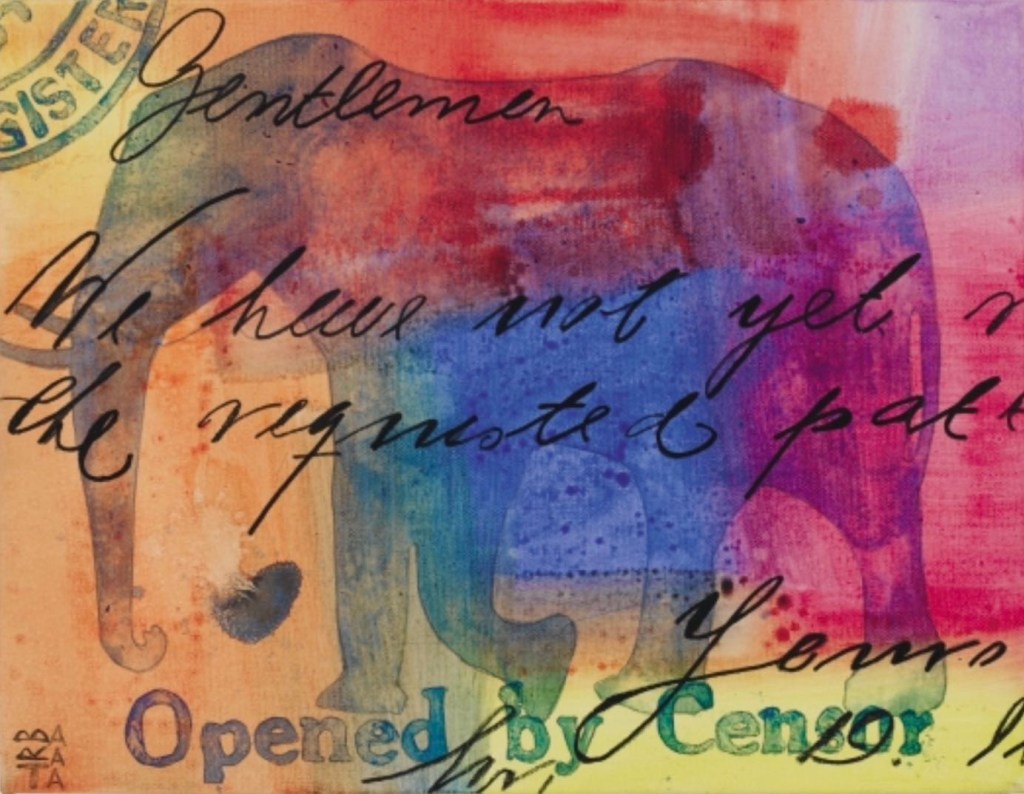 GISTER
Gentlemen
We have not yet
the requested
Yours
Opened by Censor